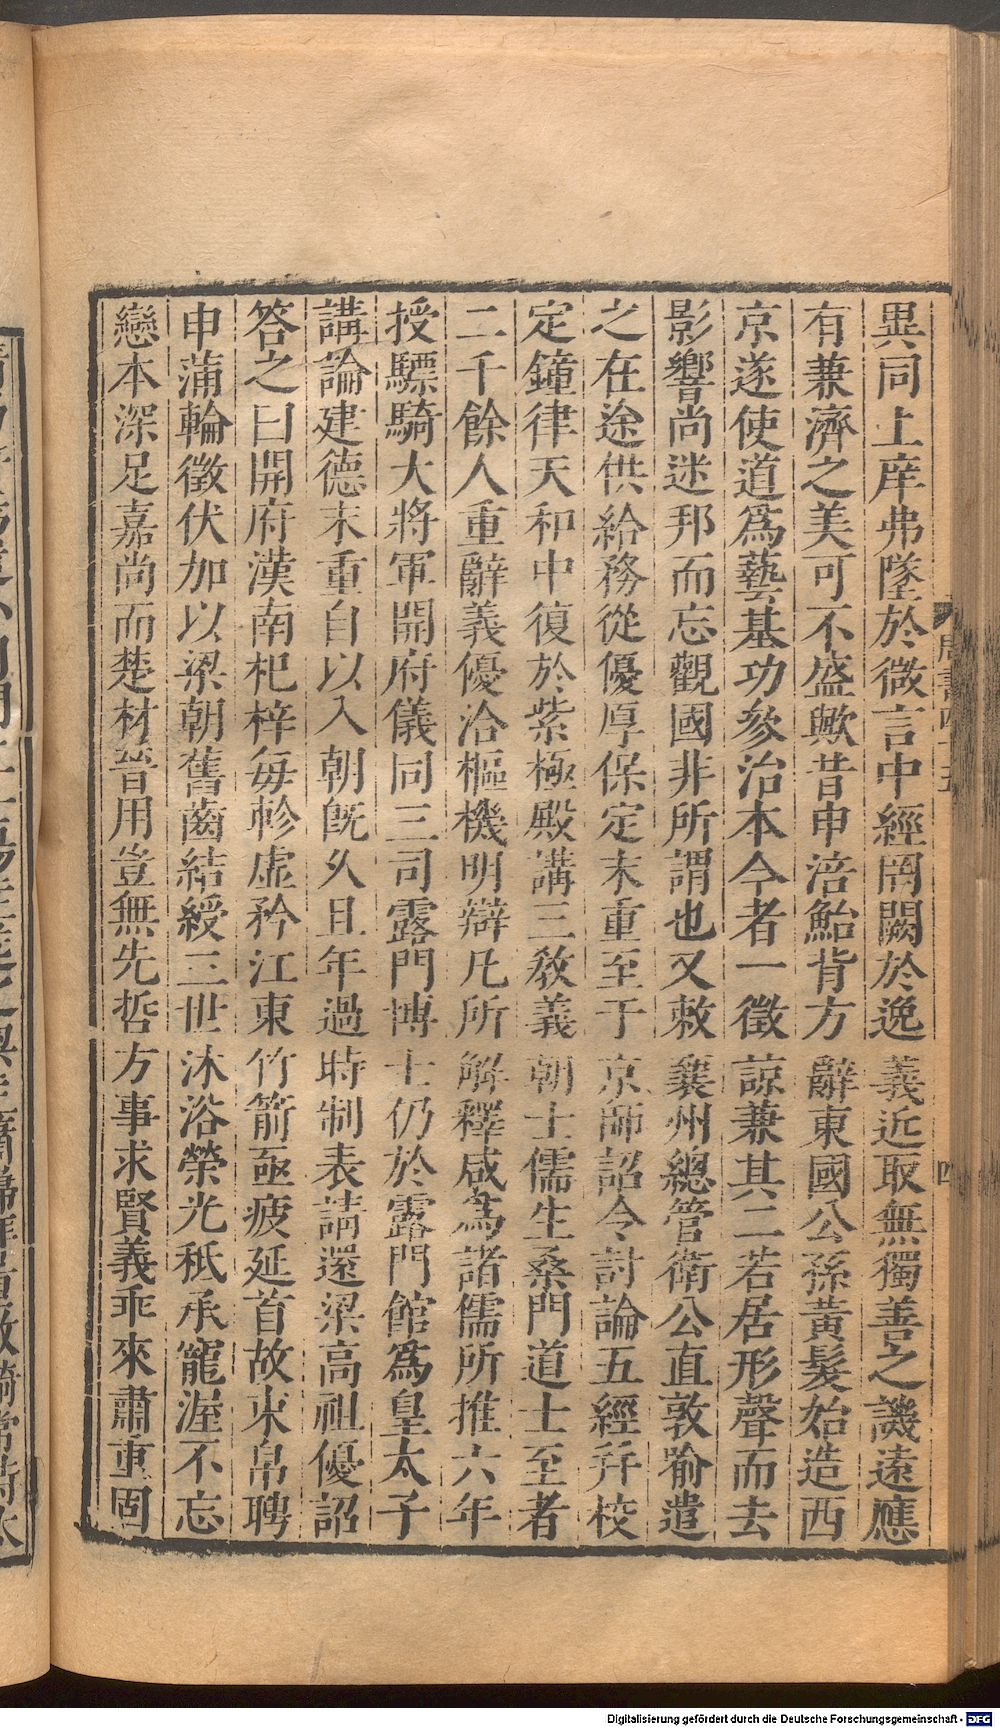 異同上庠弗墜於微言中經罔闕於逸義近取無獨善之譏遠應
有兼濟之美可不盛歟昔申涪鮐背方辭東國公孫黃髮始造西
京遂使道爲藝基功參治本今者一徵諒兼其二若居形聲而去
影響尚迷邦而忘觀國非所謂也又敕襄州總管衛公直敦喻遣
之在途供給務從優厚保定末重至于京師詔令討論五經幷校
定鐘律天和中復於紫極殿講三教義朝士儒生桑門道士至者
二千餘人重辭義優洽樞機明辯凡所解釋咸爲諸儒所推六年
授驃騎大將軍開府儀同三司露門博士仍於露門館爲皇太子
講論建德末重自以入朝旣久且年過時制表請還梁高祖優詔
答之曰開府漢南杞梓每軫虛矜江東竹箭亟疲延首故束帛聘
申蒲輪徵伏加以梁朝舊齒結綬三世沐浴榮光秖承寵渥不忘
戀本深足嘉尚而楚材晉用豈無先哲方事求賢義乖來肅重固
周書四十五
四
Digitalisierung gefördert durch die Deutsche Forschungsgemeinschaft - DFG